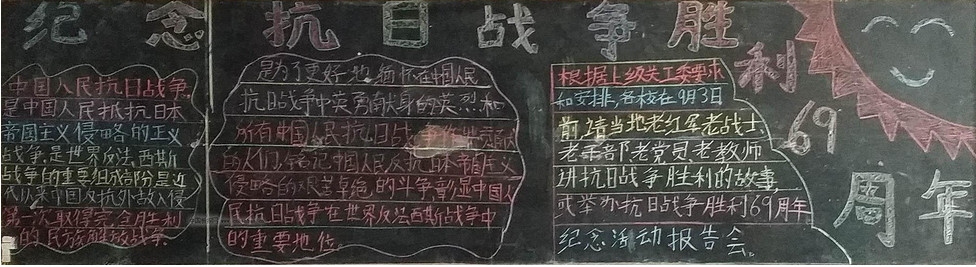 纪念抗日战争胜利69周年
中国人民抗日战争
是中国人民抵抗日本
帝国主义侵略的正义
战争,是世界反法西斯
战争的重要组成部分,是近
代以来中国反抗外敌入侵
第一次取得完全胜利
的民族解放战争
是为了更好地缅怀在中国人民
抗日战争中英勇献身的英烈和
所有中国人民抗日战争作出贡献
的人们,铭记中国人民反抗日本帝国主义
侵略的艰苦卓绝的斗争,彰显中国人
民抗日战争在世界反法西斯战争中
的重要地位
根据上级关工委要求
和安排,各校在9月3日
前请当地老红军老战士、
老干部老党员老教师
讲抗日战争胜利的故事
或举办抗日战争胜利69周年
纪念活动报告会。